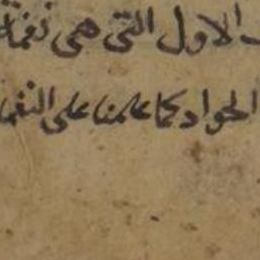 الاول التى هى نغمة
الحواد كما علمنا على النغما